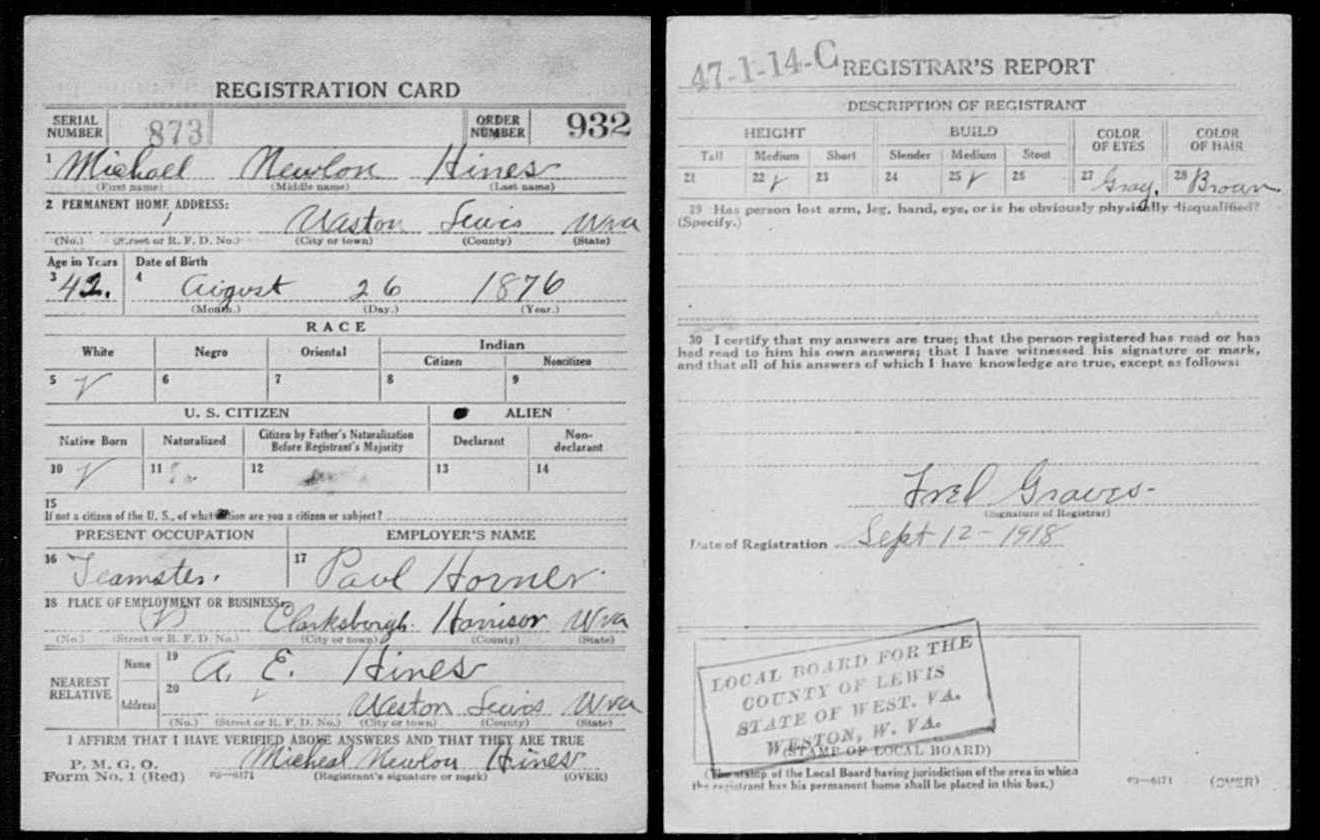 REGISTRATION CARD
SERIAL NUMBER 873 ORDER NUMBER 932
1 Michael Newlon Hines
(First name) (Middle name) (Last name)
2 PERMANENT HOME ADDRESS:
Weston Lewis Wva
(No.) (Street or R. F. D. No.) (City or town) (County) (State)
Age in Years Date of Birth
3 42. 4 August 26 1876
(Month.) (Day.) (Year.)
RACE
White Negro Oriental Indian
Citizen Noncitizen
5 6 7 8 9
U. S. CITIZEN ALIEN
Native Born Naturalized Citizen by Father's Naturalization Before Registrant's Majority Declarant Non-declarant
10 11 12 13 14
15
If not a citizen of the U. S., of what nation are you a citizen or subject?
PRESENT OCCUPATION EMPLOYER'S NAME
16 Teamster. 17 Paul Horner.
18 PLACE OF EMPLOYMENT OR BUSINESS:
Clarksburgh. Harrison Wva
(No.) (Street or R. F. D. No.) (City or town) (County) (State)
NEAREST RELATIVE Name 19 A. E. Hines
Address 20 Weston Lewis Wva
(No.) (Street or R. F. D. No.) (City or town) (County) (State)
I AFFIRM THAT I HAVE VERIFIED ABOVE ANSWERS AND THAT THEY ARE TRUE
P. M. G. O. Micheal Newlon Hines
Form No. 1 (Red) 03—6171 (Registrant's signature or mark) (OVER)
47-1-14-C REGISTRAR'S REPORT
DESCRIPTION OF REGISTRANT
HEIGHT BUILD COLOR OF EYES COLOR OF HAIR
Tall Medium Short Slender Medium Stout
21 22 23 24 25 26 27 Gray. 28 Brown
29 Has person lost arm, leg, hand, eye, or is he obviously physically disqualified?
(Specify.)
30 I certify that my answers are true; that the person registered has read or has
had read to him his own answers; that I have witnessed his signature or mark,
and that all of his answers of which I have knowledge are true, except as follows:
Fred Graves-
(Signature of Registrar)
Date of Registration Sept 12-1918
LOCAL BOARD FOR THE
COUNTY OF LEWIS
STATE OF WEST. VA.
WESTON, W. VA.
(STAMP OF LOCAL BOARD)
(The stamp of the Local Board having jurisdiction of the area in which
the registrant has his permanent home shall be placed in this box.)
03—6171 (OVER)